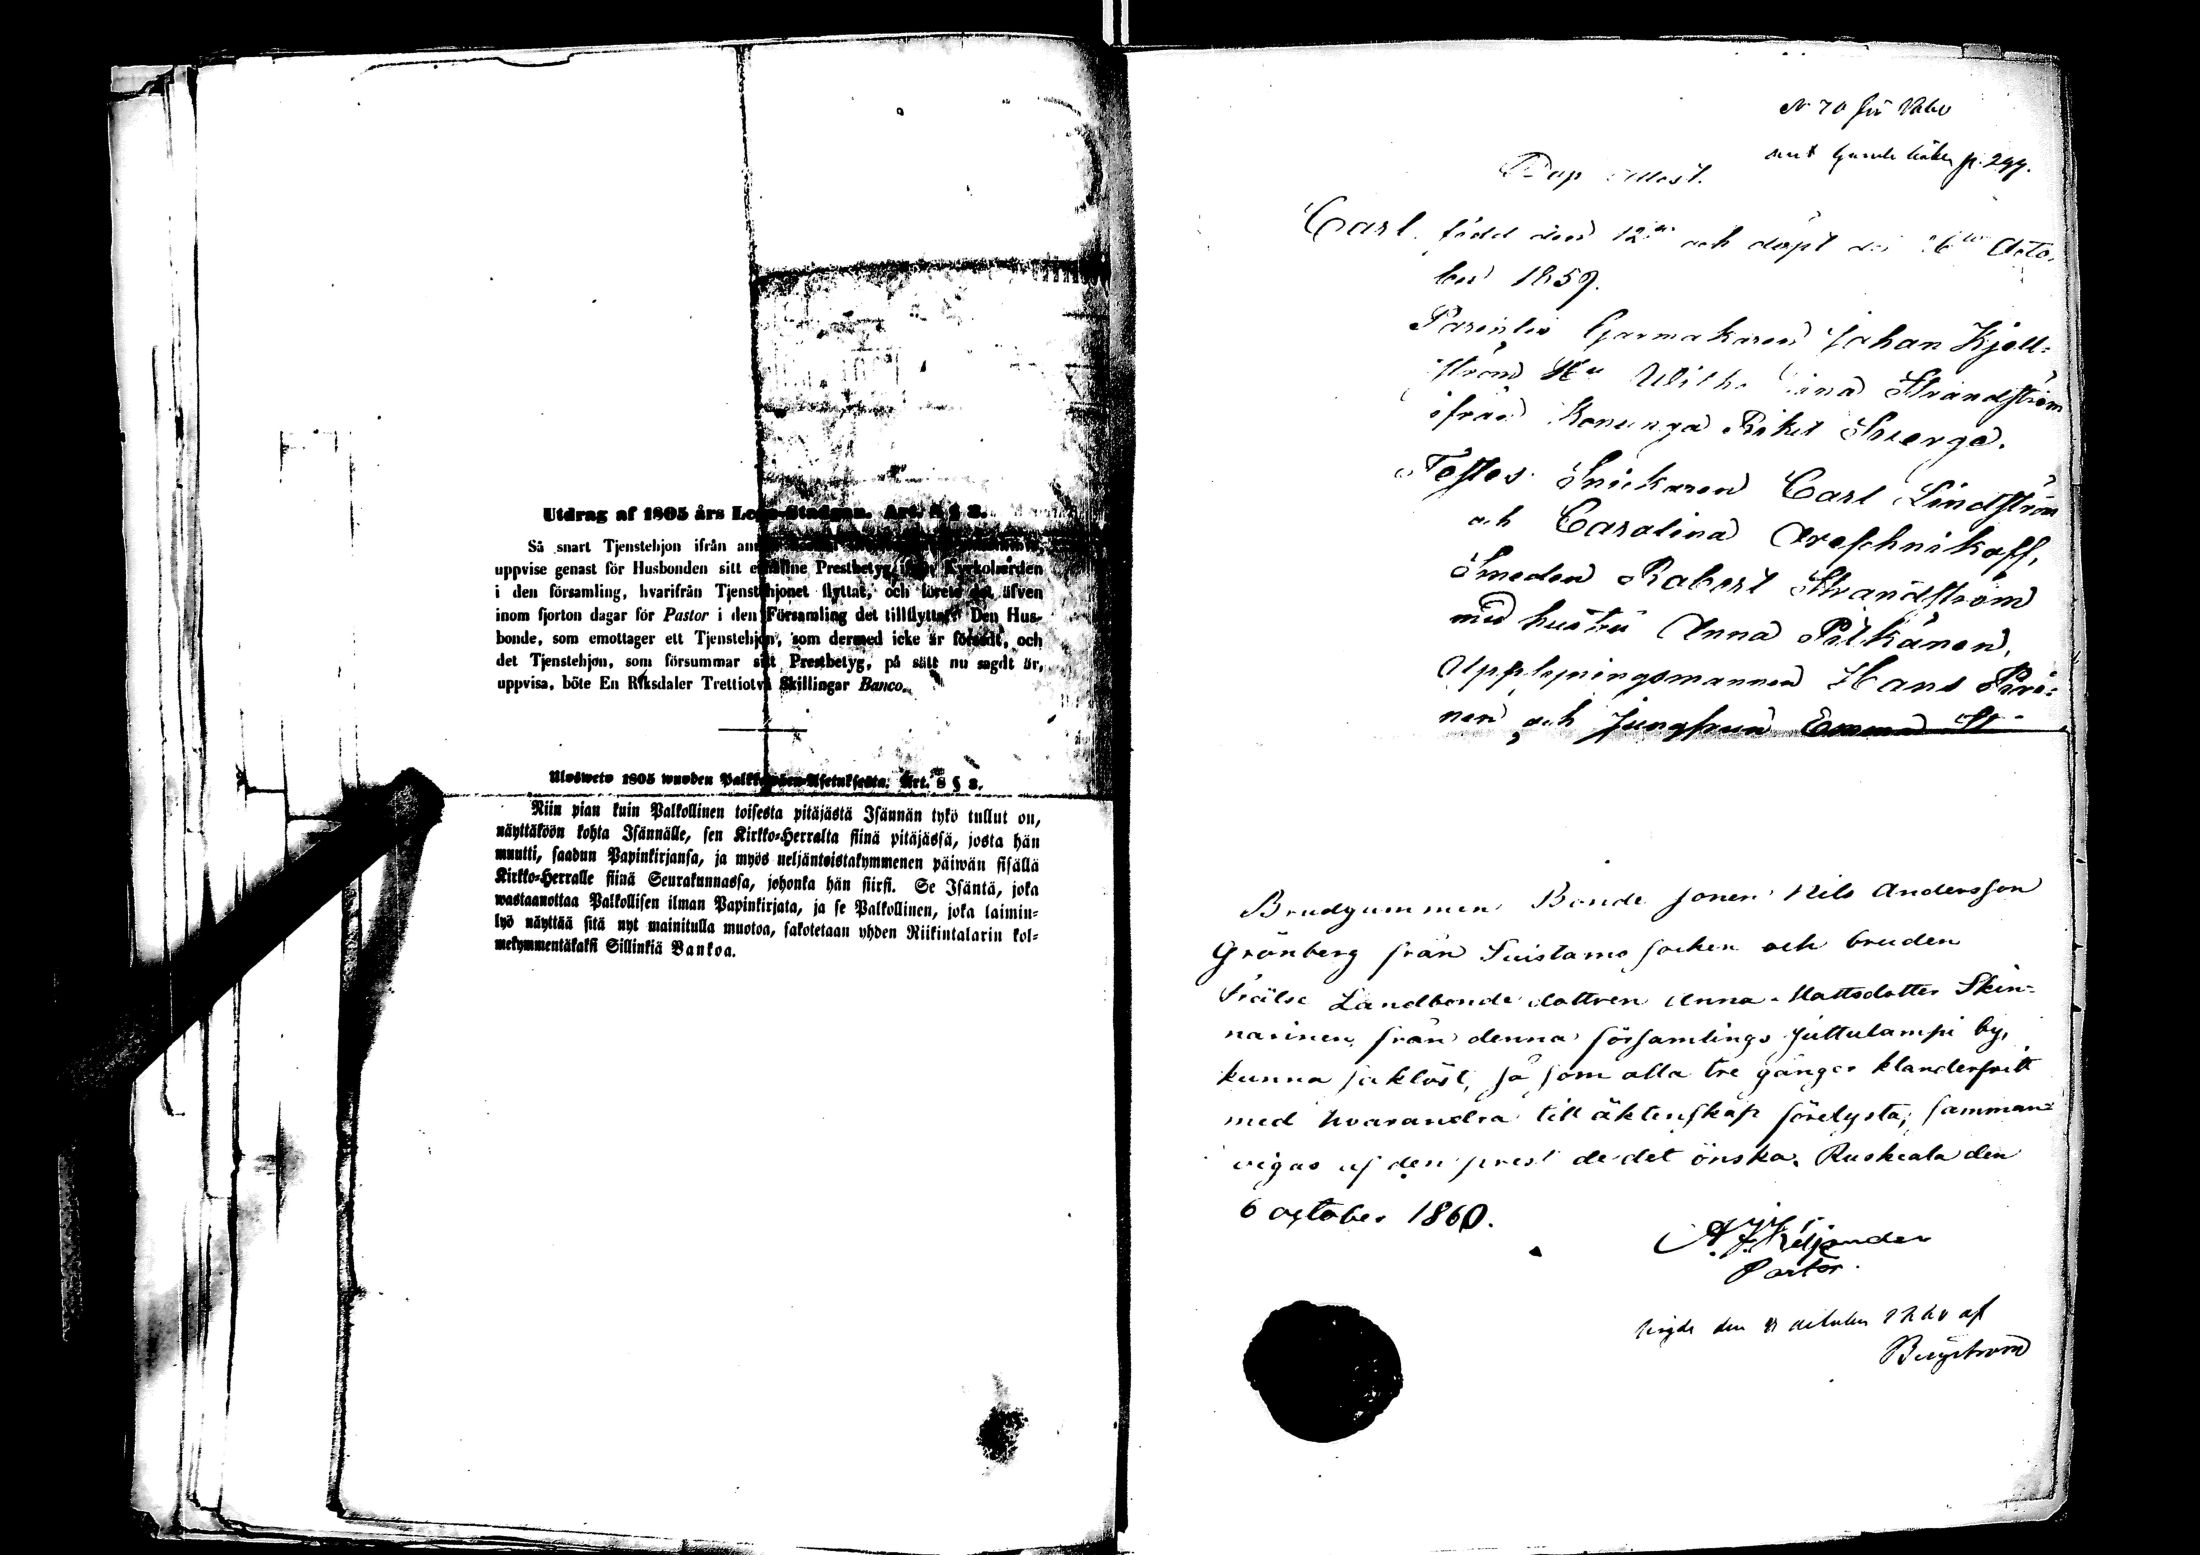 Utdrag af 1805 års Lego-Stadgan. Art. 8 § 3.
Så snart Tjenstehjon ifrån
uppvise genast för Husbonden sitt Prestbetyg Kyrkoherden
i den församling, hvarifrån Tjenstehjonet flyttat, och förete det äfven
inom fjorton dagar för Pastor i den Församling det tillflyttat. Den Hus-
bonde, som emottager ett Tjenstehjon, som dermed icke är försedt, och
det Tjenstehjon, som försummar sitt Prestbetyg, på sätt nu sagdt är,
uppvisa, böte En Riksdaler Trettiotvå Skillingar Banco.
Ulosweto 1805 wuoden Palkkawäen-Asetuksesta. Art. 8 § 3.
Niin pian kuin Palkollinen toisesta pitäjästä Isännän tykö tullut on,
näyttäköön kohta Isännälle, sen Kirkko-Herralta siinä pitäjässä, josta hän
muutti, saadun Papinkirjansa, ja myös neljäntoistakymmenen päiwän sisällä
Kirkko-Herralle siinä Seurakunnassa, johonka hän siirsi. Se Isäntä, joka
wastaanottaa Palkollisen ilman Papinkirjata, ja se Palkollinen, joka laimin-
lyö näyttää sitä nyt mainitulla muotoa, sakotetaan yhden Riikintalarin kol-
mekymmentäkaksi Sillinkiä Bankoa.
N 70 för 1860
p. 299.
Dop attest.
Carl, född den 12te och döpt den Octo-
ber 1859.
Parentes Garmakaren Johan Kjell-
ström Hu Wilhelmina Strandström
ifrån Konunga Riket Sverge.
Testes Snickaren Carl Lindström
och Carolina Oreschnikoff,
Smeden Robert Strandström
med hustru Anna Pitkänen,
Upplysningsmannen Hans Parvi-
nen och Jungfrun Emma St
Brudgummen Bonde sonen Nils Andersson
Grönberg från Suistamo socken och bruden
Frälse Landbonde dottren Anna Mattsdotter Skin-
narinen från denna församlings Juttulampi by,
kunna saklöst, så som alla tre gånger klanderfritt
med hvarandra till äktenskap förelysta, samman-
vigas af den prest de det önska. Ruskeala den
6 october 1860.
Pastor.
Vigde den 8 october 1860 af
Bergström